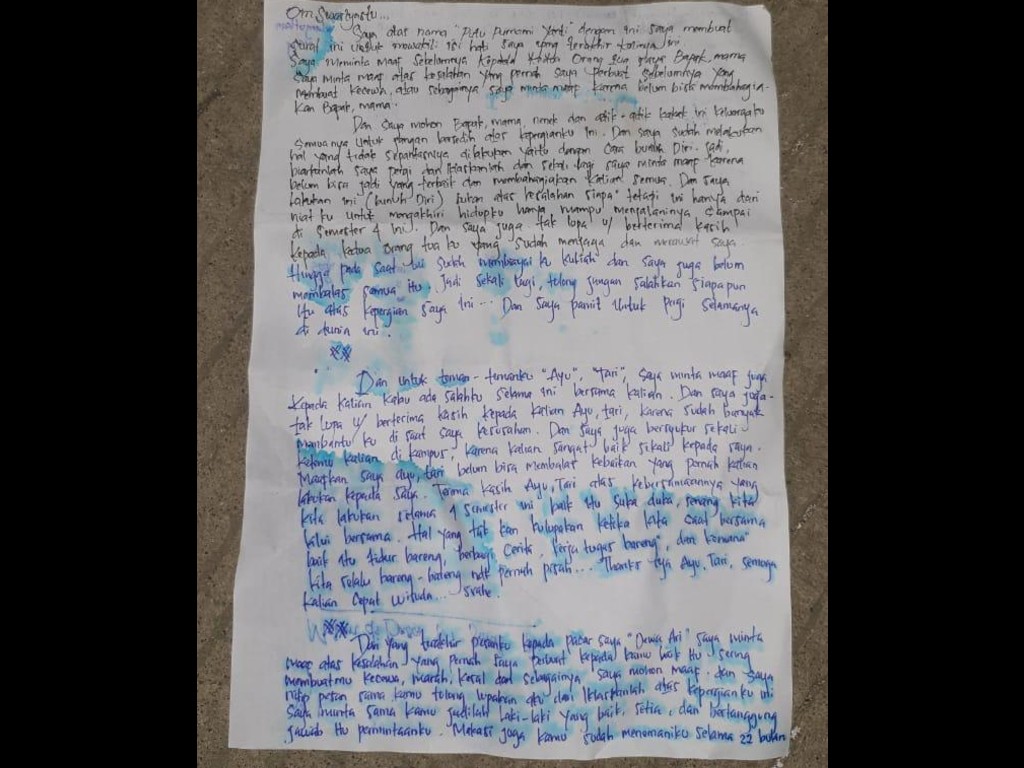 Om Swastyastu...
Saya atas nama "Putu Purnami Yanti" dengan ini saya membuat
surat ini untuk mewakili isi hati saya yang terakhir kalinya ini
Saya meminta maaf sebelumnya kepada kedua orang tua saya Bapak, mama
Saya minta maaf atas kesalahan yang pernah saya perbuat sebelumnya yang
membuat kecewa, atau sebagainya saya minta maaf karena belum bisa membahagia-
kan Bapak, mama.
Dan saya mohon Bapak, mama, nenek dan adik-adik kakak ini keluargaku
semuanya untuk jangan bersedih atas kepergianku ini. Dan saya sudah melakukan
hal yang tidak sepantasnya dilakukan yaitu dengan cara bunuh diri. Jadi,
biarkanlah saya pergi dan Iklaskanlah dan sekali lagi saya minta maaf karena
belum bisa jadi yang terbaik dan membahagiakan kalian semua. Dan saya
lakukan ini (bunuh Diri) bukan atas kesalahan siapa" tetapi ini hanya dari
niatku untuk mengakhiri hidupku hanya mampu menjalaninya sampai
di semester 4 ini. Dan saya juga tak lupa u/ berterima kasih
kepada kedua orang tua ku yang sudah menjaga dan merawat saya
Hingga pada saat ini sudah membiayai ku kuliah dan saya juga belum
membalas semua itu. Jadi sekali lagi, tolong jangan salahkan siapapun
itu atas kepergian saya ini... Dan saya pamit untuk pergi selamanya
di dunia ini.
Dan untuk teman-temanku "Ayu", "Tari", saya minta maaf juga
kepada kalian kalau ada salahku selama ini bersama kalian. Dan saya juga
tak lupa u/ berterima kasih kepada kalian Ayu, tari, karena sudah banyak
membantu ku di saat saya kesusahan. Dan saya juga bersyukur sekali
ketemu kalian di kampus, karena kalian sangat baik sekali kepada saya.
Maafkan saya ayu, tari belum bisa membalas kebaikan yang pernah kalian
lakukan kepada saya. Terima kasih Ayu, Tari atas kebersamaannya yang
kita lakukan selama 4 semester ini baik itu suka duka, senang kita
lalui bersama. Hal yang tak kan kulupakan ketika kita saat bersama
baik itu tidur bareng, berbagi cerita, kerja tugas bareng", dan kemana"
kita selalu bareng-bareng ndk pernah pisah... Thanks ya Ayu, Tari, semoga
kalian Cepat Wisuda...
Dan yang terakhir pesanku kepada pacar saya "Dewa Ari" saya minta
maaf atas kesalahan yang pernah saya perbuat kepada kamu baik itu sering
membuatmu kecewa, marah, kesal dan sebagainya saya mohon maaf. dan saya
nitip pesan sama kamu tolong lupakan aku dan Iklaskanlah atas kepergianku ini
Saya minta sama kamu jadilah laki-laki yang baik, setia, dan bertanggung
jawab itu permintaanku. Makasi juga kamu sudah menemaniku selama 22 bulan